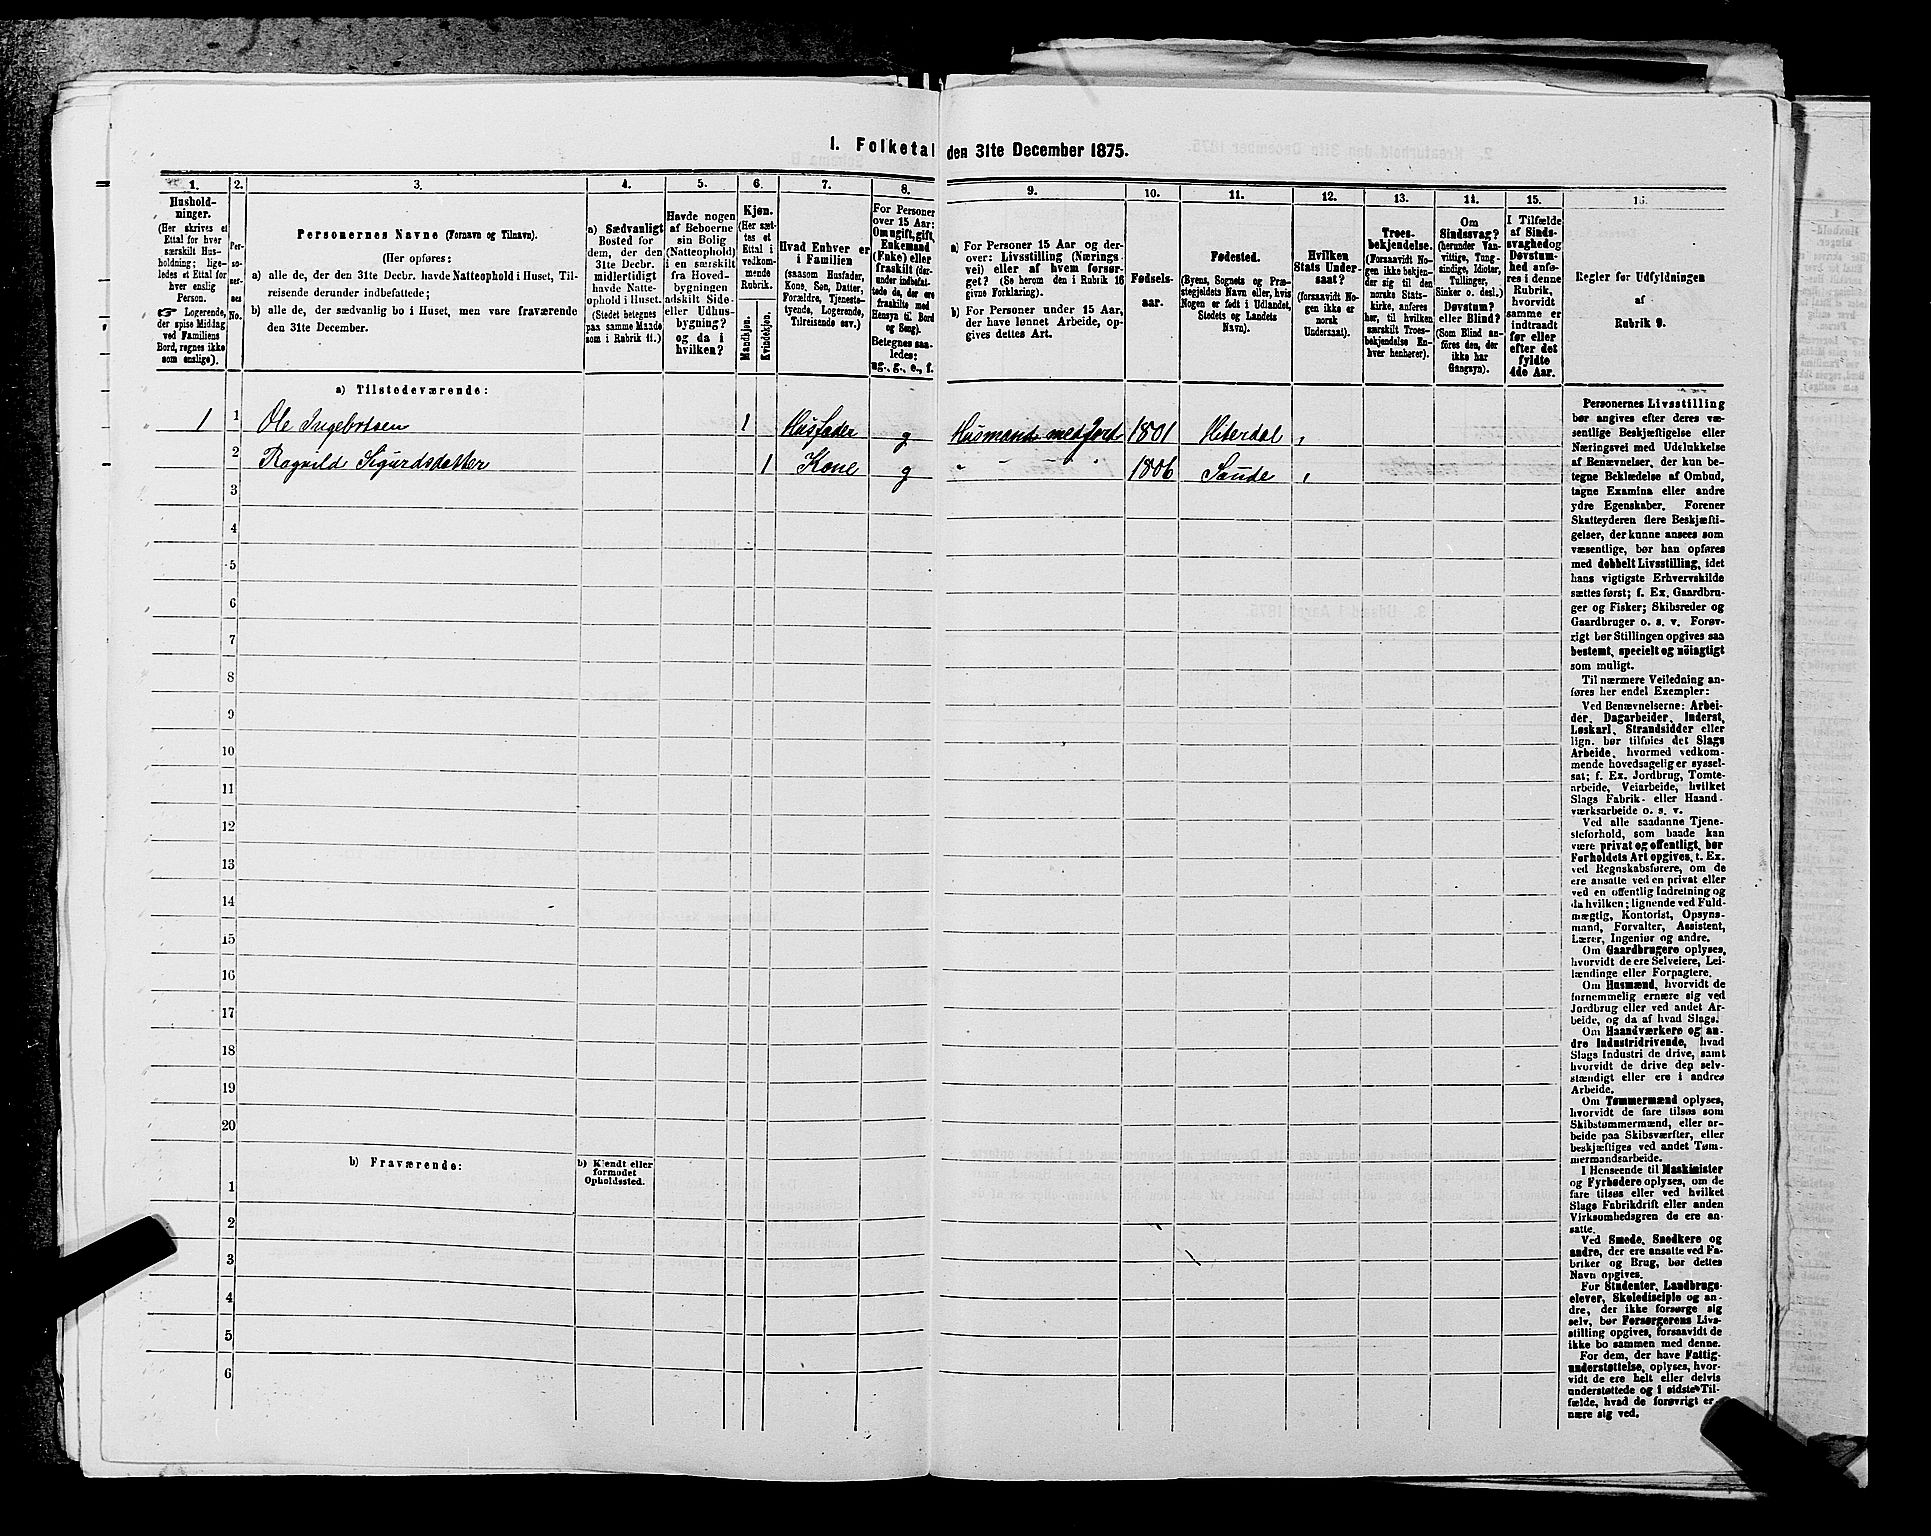 1. Folketal den 31te December 1875.
1. 2. 3. 4. 5. 6. 7. 8. 9. 10. 11. 12. 13. 14. 15. 16.
Hushold-
ninger.
(Her skrives et
Ettal for hver
særskilt Hus-
holdning; lige-
ledes et Ettal for
hver enslig
Person.
☞ Logerende,
der spise Middag
ved Familiens
Bord, regnes ikke
som enslige).
Per-
so-
ner-
nes
No.
Personernes Navne (Fornavn og Tilnavn).
(Her opføres:
a) alle de, der den 31te Decbr. havde Natteophold i Huset, Til-
reisende derunder indbefattede;
b) alle de, der sædvanlig bo i Huset, men vare fraværende
den 31te December.
a) Sædvanligt
Bosted for
dem, der den
31te Decbr.
midlertidigt
havde Natte-
ophold i Huset.
(Stedet betegnes
paa samme Maade
som i Rubrik 11.)
Havde nogen
af Beboerne
sin Bolig
(Natteophold)
i en særskilt
fra Hoved-
bygningen
adskilt Side-
eller Udhus-
bygning?
og da i
hvilken?
Kjøn.
(Her sæt-
tes et
Ettal i
vedkom-
mende
Rubrik.
Mandkjøn.
Kvindekjøn.
Hvad Enhver er
i Familien
(saasom Husfader,
Kone, Søn, Datter,
Forældre, Tjeneste-
tyende, Logerende,
Tilreisende osv.)
For Personer
over 15 Aar:
Om ugift, gift,
Enkemand
(Enke) eller
fraskilt (der-
under indbefat-
tede de, der ere
fraskilte med
Hensyn til Bord
og Seng).
Betegnes saa-
ledes:
ug., g., e., f.
a) For Personer 15 Aar og der-
over: Livsstilling (Nærings-
vei) eller af hvem forsør-
get? (Se herom den i Rubrik 16
givne Forklaring).
b) For Personer under 15 Aar,
der have lønnet Arbeide, op-
gives dettes Art.
Fødsels-
aar.
Fødested.
(Byens, Sognets og Præ-
stegjeldets Navn eller, hvis
Nogen er født i Udlandet,
Stedets og Landets
Navn).
Hvilken
Stats Under-
saat?
(forsaavidt No-
gen ikke er
norsk
Undersaat).
Troes-
bekjendelse.
(Forsaavidt No-
gen ikke bekjen-
der sig til den
norske Stats-
kirke, anføres
her, til hvilken
særskilt Troes-
bekjendelse En-
hver henhører).
Om
Sindssvag?
(herunder Van-
vittige, Tung-
sindige, Idioter,
Tullinger,
Sinker o. desl.)
Døvstum?
eller Blind?
(Som Blind an-
føres den, der
ikke har
Gangsyn).
I Tilfælde
af Sinds-
svaghed og
Døvstum-
hed anfø-
res i denne
Rubrik,
hvorvidt
samme er
indtraadt
før eller
efter det
fyldte
4de Aar.
Regler før Udfyldningen
af
Rubrik 9.
a) Tilstedeværende:
1 1 Ole Ingebrtsen 1 Husfader g Husmand med Jord 1801 Hiterdal ,
2 Ragnild Sigurdsdatter 1 Kone g " " " 1806 Saude ,
3
4
5
6
7
8
9
10
11
12
13
14
15
16
17
18
19
20
b) Fraværende:
b) Kjendt eller
formodet
Opholdssted.
1
2
3
4
5
6
Personernes Livsstilling
bør angives efter deres væ-
sentlige Beskjæftigelse eller
Næringsvei med Udelukkelse
af Benævnelser, der kun be-
tegne Beklædelse af Ombud,
tagne Examina eller andre
ydre Egenskaber. Forener
Skatteyderen flere Beskjæfti-
gelser, der kunne ansees som
væsentlige, bør han opføres
med dobbelt Livsstilling, idet
hans vigtigste Erhvervskilde
sættes først; f. Ex. Gaardbru-
ger og Fisker; Skibsreder og
Gaardbruger o. s. v. Forøv-
rigt bør Stillingen opgives saa
bestemt, specielt og nöiagtigt
som muligt.
Til nærmere Veiledning an-
føres her endel Exempler:
Ved Benævnelserne: Arbei-
der, Dagarbeider, Inderst,
Løskarl, Strandsidder eller
lign. bør tilføies det Slags
Arbeide, hvormed vedkom-
mende hovedsagelig er syssel-
sat; f. Ex. Jordbrug, Tomte-
arbeide, Veiarbeide, hvilket
Slags Fabrik- eller Haand-
værksarbeide o. s. v.
Ved alle saadanne Tjene-
steforhold, som baade kan
være privat og offentligt, bør
Forholdets Art opgives, t. Ex.
ved Regnskabsførere, om de
ere ansatte ved en privat eller
ved en offentlig Indretning og
da hvilken; lignende ved Fuld-
mægtig, Kontorist, Opsyns-
mand, Forvalter, Assistent,
Lærer, Ingeniør og andre.
Om Gaardbrugere oplyses,
hvorvidt de ere Selveiere, Lei-
lændinge eller Forpagtere.
Om Husmænd, hvorvidt de
fornemmelig ernære sig ved
Jordbrug eller ved andet Ar-
beide, og da af hvad Slags.
Om Haandværkere og an-
dre Industridrivende, hvad
Slags Industri de drive, samt
hvorvidt de drive den selv-
stændigt eller ere i andres
Arbeide.
Om Tømmermænd oplyses,
hvorvidt de fare tilsøs som
Skibstømmermænd, eller ar-
beide paa Skibsværfter, eller
beskjæftiges ved andet Tøm-
mermandsarbeide.
I Henseende til Maskinister
og Fyrbødere oplyses, om de
fare tilsøs eller ved hvilket
Slags Fabrikdrift eller anden
Virksomhedsgren de ere an-
satte.
Ved Smede, Snedkere og
andre, der ere ansatte ved Fa-
briker og Brug, bør dettes
Navn opgives.
For Studenter, Landbrugs-
elever, Skoledisciple og an-
dre, der ikke forsørge sig
selv, bør Forsørgerens Livs-
stilling opgives, forsaavidt de
ikke bo sammen med denne.
For dem, der have Fattig-
understøttelse, oplyses, hvor-
vidt de ere helt eller delvis
understøttede og i sidste Til-
fælde, hvad de forøvrigt er-
nære sig ved.